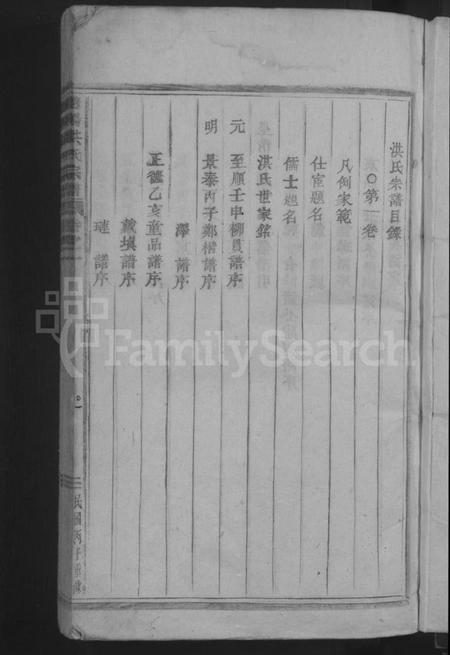 洪氏宗譜目錄
○第一卷
凡例家範
仕宦題名
儒士題名
洪氏世家銘
元　至順壬申柳貫譜序
明　景泰丙子鄭楷譜序
澤　譜序
正德乙亥童品譜序
戴塤譜序
璉　譜序
洪氏宗譜
民國丙子重修
FamilySearch